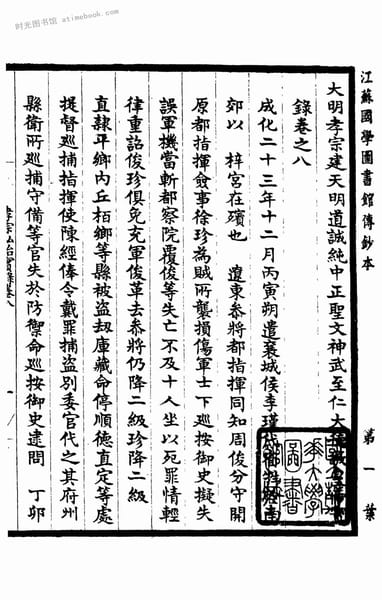 时光图书馆 atimebook.com
江蘇國學圖書館傳鈔本
第一葉
大明孝宗建天明道誠純中正聖文神武至仁大
錄卷之八
成化二十三年十二月丙寅朔遣襄城侯李瑾
郊以 梓宮在殯也 遼東參將都指揮同知周俊分守開
原都指揮僉事徐珍為賊所襲損傷軍士下巡按御史擬失
誤軍機當斬都察院覆俊等失亡不及十人坐以死罪情輕
律重詔俊珍俱免充軍俊革去參將仍降二級珍降二級
直隸平鄉內丘栢鄉等縣被盜刼庫藏命停順德真定等處
提督巡捕指揮使陳經俸令戴罪捕盜別委官代之其府州
縣衛所巡捕守備等官失於防禦命巡按御史逮問 丁卯